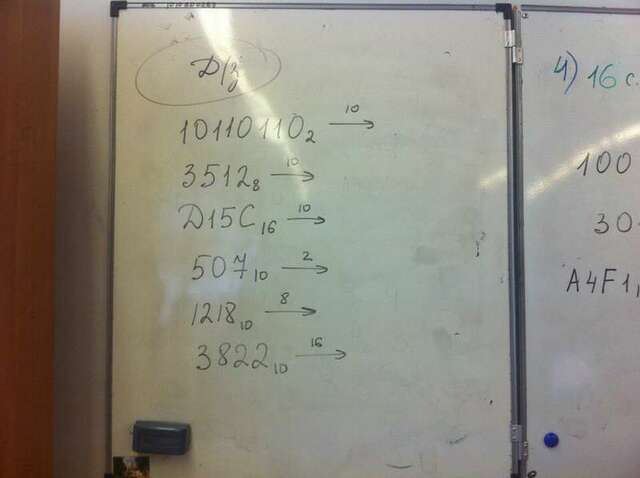 Д/з
10110110₂ →10
3512₈ →10
D15C₁₆ →10
507₁₀ →2
1218₁₀ →8
3822₁₀ →16
4) 16 с.
100
30
A4F1,